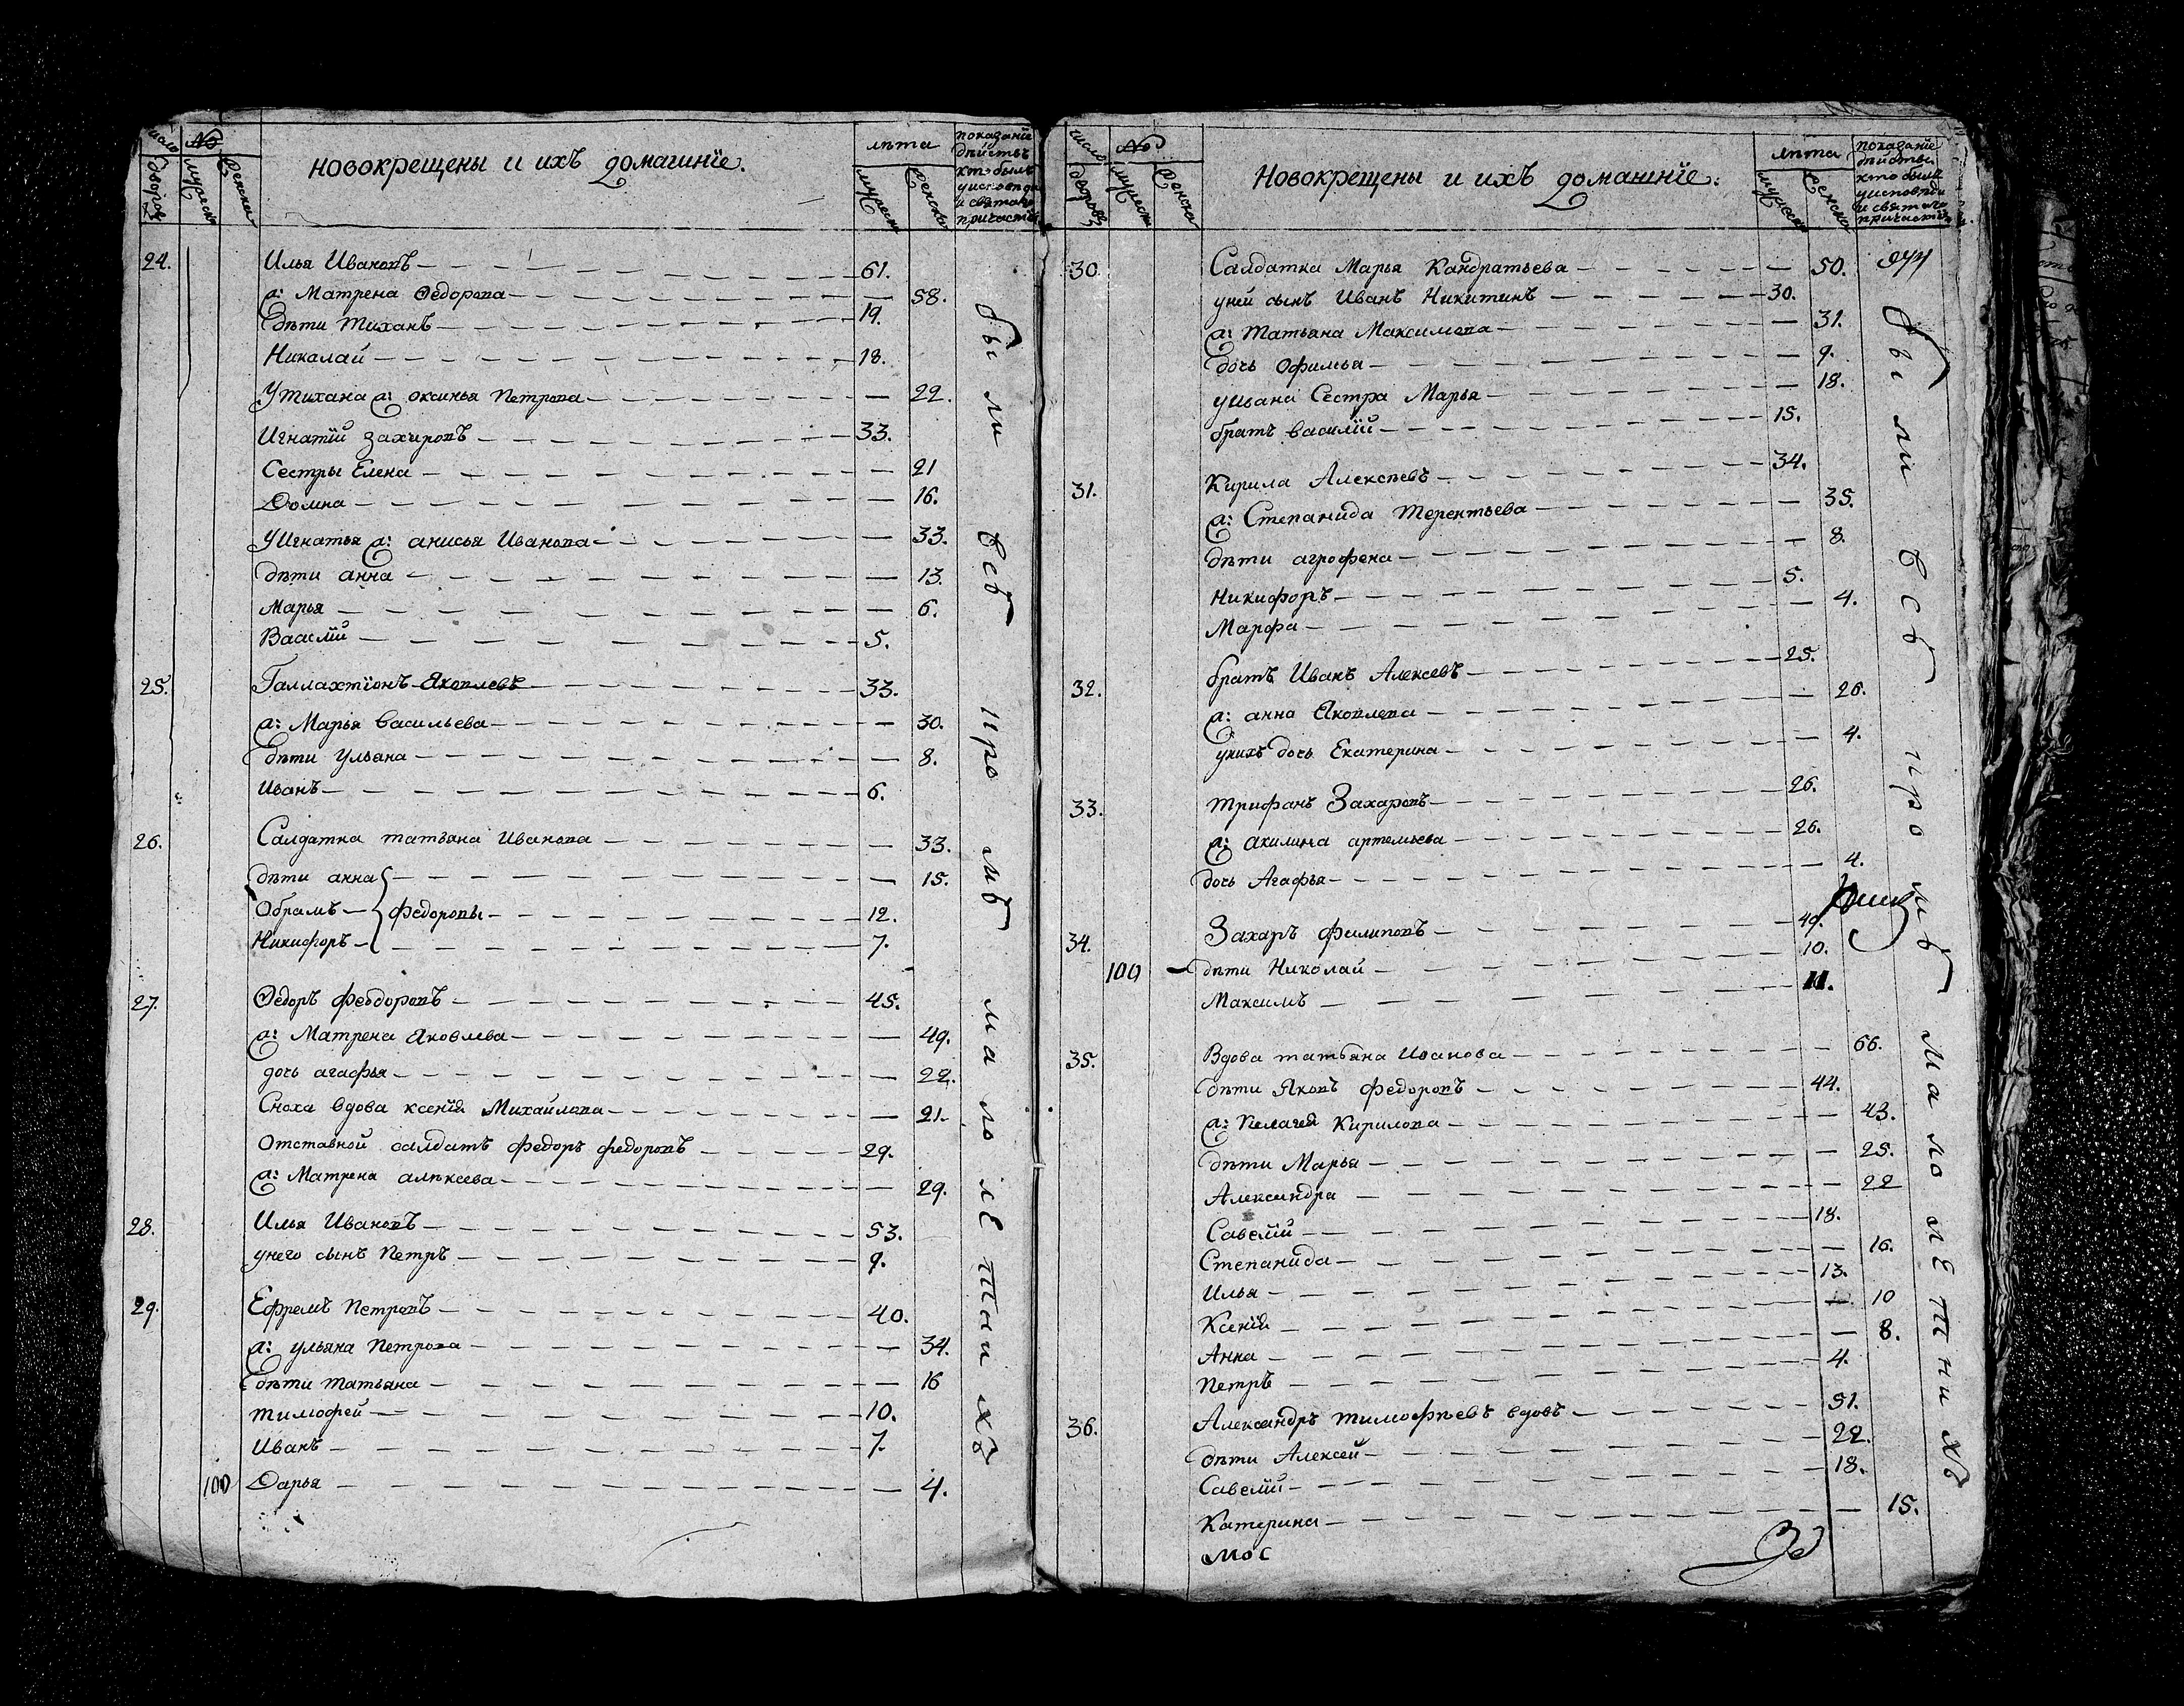 число дворовъ
№
мужеск
женска
новокрещены и ихъ домашнїе.
лѣта
мужеск
женска
показанїе
дѣйствъ
кто былъ
у исповѣди
и святаго
причастїя
24. Илья Ивановъ 61.
а: Матрена Ѳедорова 58.
дѣти Тиханъ 19.
Николай 18.
У тихана а: оксинья Петрова 22.
Игнатїй Захаровъ 33.
Сестры Елена 21
Домна 16.
У Игнатья а: анисья Иванова 33.
дѣти анна 13.
Марья 6.
Ваасмїй 5.
25. Галлахтїонъ Яковлевъ 33.
а: Марья Васильева 30.
дѣти Ульяна 8.
Иванъ 6.
26. Салдатка татьяна Иванова 33.
дѣти анна 15.
Обрамъ федоровы 12.
Никифоръ 7.
27. Ѳедоръ феодоровъ 45.
а: Матрена Яковлева 49.
дочь агафья 22.
Сноха вдова ксенїя Михайлова 21.
Отставной салдатъ федоръ федоровъ 29.
а: Матрена алѣксеева 29.
28. Илья Ивановъ 53.
у него сынъ Петръ 9.
29. Ефремъ Петровъ 40.
а: ульяна Петрова 34.
дѣти татьяна 16
тимофей 10.
Иванъ 7.
100 Дарья 4.
были всѣ кромѣ малолѣтнихъ
число дворовъ
№
мужеск
женска
Новокрещены и ихъ домашнїе.
лѣта
мужеск
женска
показанїе
дѣйствъ
кто былъ
у исповѣди
и святаго
причастїя
30. Салдатка Марья Кандратьева 50.
у ней сынъ Иванъ Никитинъ 30.
а: Татьяна Максимова 31.
дочь Офимья 9.
у ивана Сестра Марья 18.
братъ василїй 15.
31. Кирила Алексѣевъ 34.
а: Степанида Терентьева 35.
дѣти агрофена 8.
Никифоръ 5.
Марфа 4.
32. братъ Иванъ Алексевъ 25.
а: анна Яковлева 26.
у нихъ дочь Екатерина 4.
33. Трифанъ Захаровъ 26.
а: акилина артемьева 26.
дочь Агафья 4.
34. Захаръ филиповъ 49.
100 дѣти Николай 10.
Максимъ 11.
35. Вдова татьяна Иванова 66.
дѣти Яковъ федоровъ 44.
а: Пелагея Кирилова 43.
дѣти Марья 25.
Александра 22
Савелїй 18.
Степанида 16.
Илья 13.
Ксенїя 10
Анна 8.
Петръ 4.
36. Александръ тимофѣевъ вдовъ 51.
дѣти Алексей 22.
Савелїй 18.
Катерина 15.
Мос
были всѣ кромѣ малолѣтнихъ